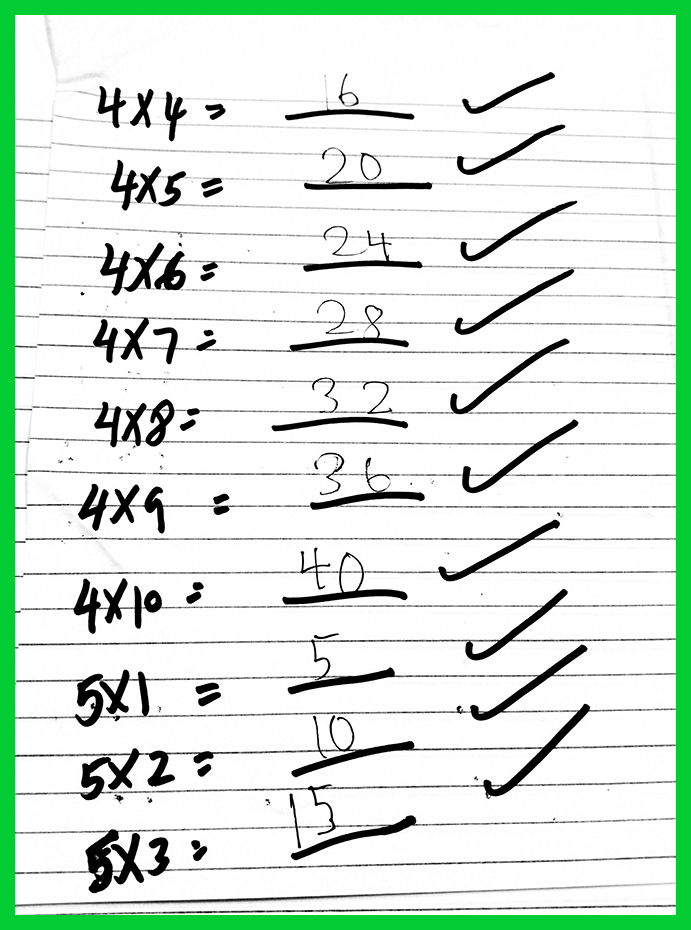 4X4= 16 ✓
4X5= 20 ✓
4X6= 24 ✓
4X7= 28 ✓
4X8= 32 ✓
4X9 = 36 ✓
4X10 = 40 ✓
5X1 = 5 ✓
5X2 = 10 ✓
5X3 = 15 ✓